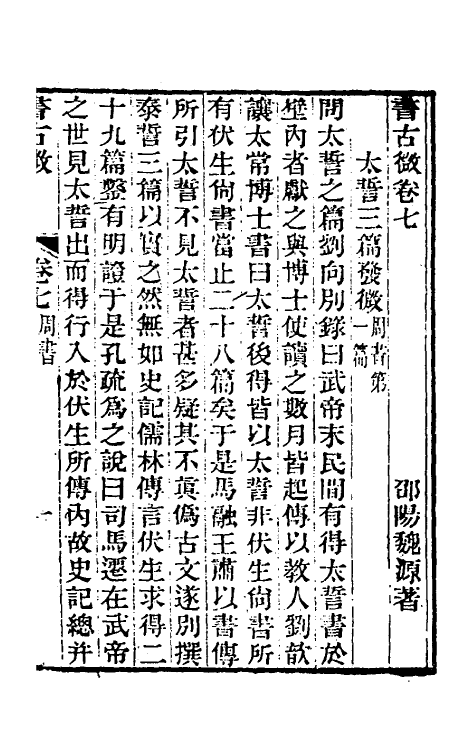 書古微卷七
邵陽魏源著
太誓三篇發微周書第一篇
問太誓之篇劉向別錄曰武帝末民間有得太誓書於
壁內者獻之與博士使讀之數月皆起傳以教人劉歆
讓太常博士書曰太誓後得皆以太誓非伏生尙書所
有伏生尙書當止二十八篇矣于是馬融王肅以書傳
所引太誓不見太誓者甚多疑其不眞僞古文遂別撰
泰誓三篇以實之然無如史記儒林傳言伏生求得二
十九篇鑿有明證于是孔疏爲之說曰司馬遷在武帝
之世見太誓出而得行入於伏生所傳內故史記總幷
書古微
卷七周書
一